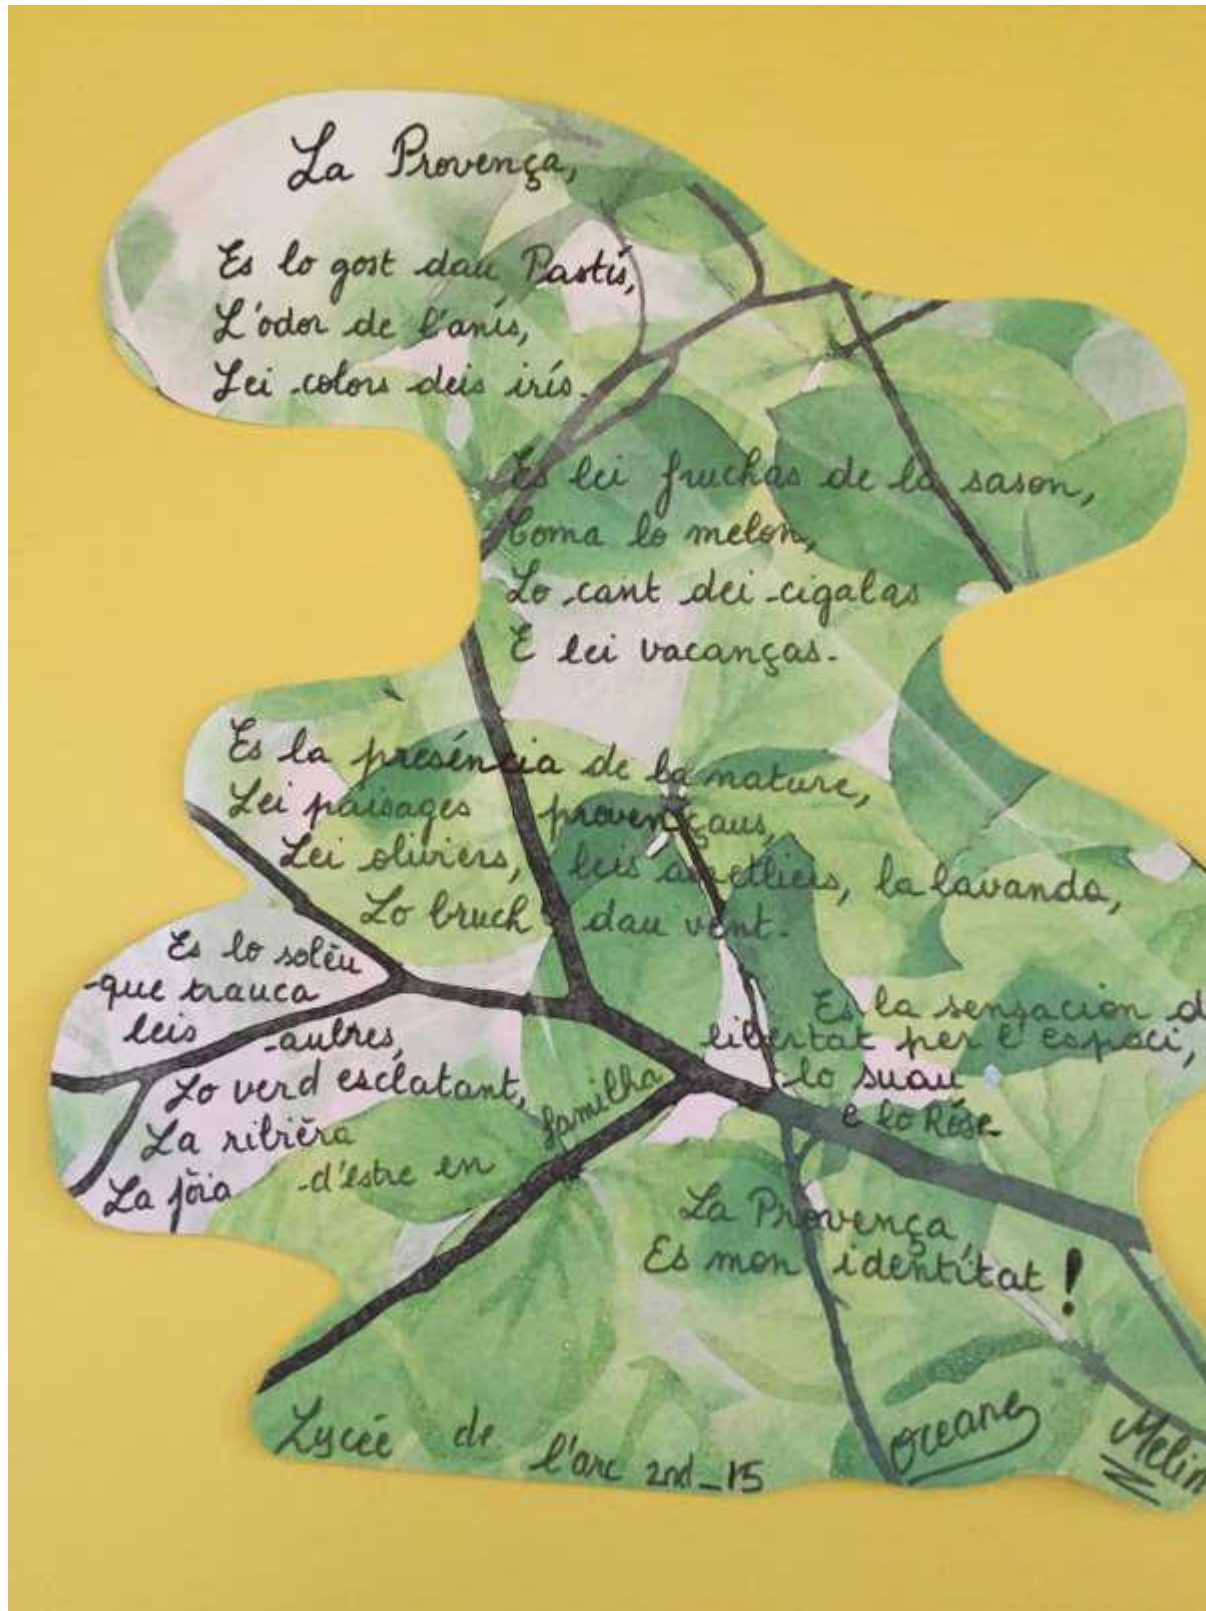 La Provença,
Es lo gost dau Pastís,
L'odor de l'anís,
Lei colors deis irís.
Es lei fruchas de la sason,
Coma lo melon,
Lo cant dei cigalas
E lei vacanças.
Es la preséncia de la nature,
Lei païsages provençaus,
Lei oliviers, leis ametliers, la lavanda,
Lo bruch dau vent.
Es lo solèu
que trauca
leis aubres,
Lo verd esclatant,
La ribièra
La jòia d'estre en familha
Es la sensacion d
libertat per l'espaci,
lo suau
e lo Ròse
La Provença
Es mon identitat !
Lycée de l'arc 2nd_15
Oceane
Melin